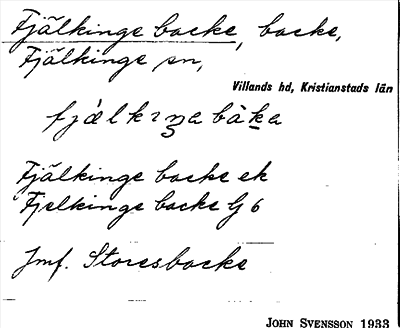 Fjälkinge backe, backe,
Fjälkinge sn,
Villands hd, Kristianstads län
Fjälkinge backe ek
Fjelkinge backe G 6
Jmf. Storesbacke
JOHN SVENSSON 1933